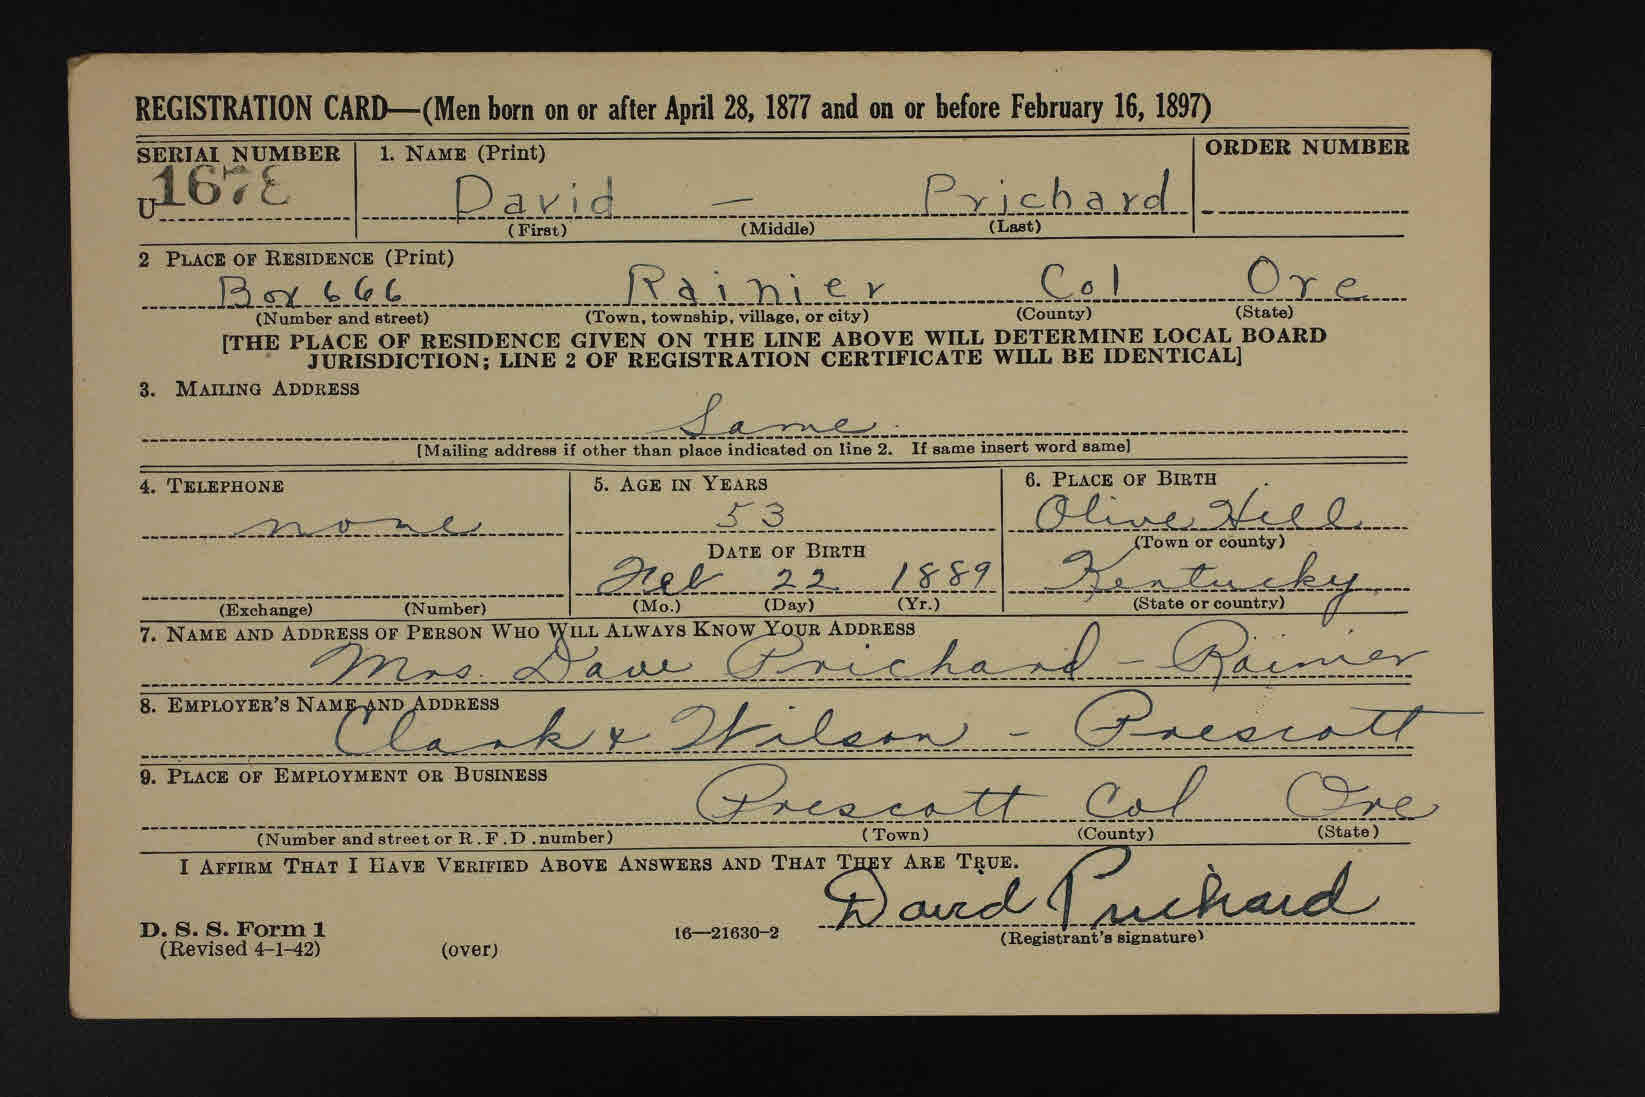 REGISTRATION CARD—(Men born on or after April 28, 1877 and on or before February 16, 1897)
SERIAL NUMBER 1. NAME (Print) ORDER NUMBER
U 1678 David — Prichard
(First) (Middle) (Last)
2 PLACE OF RESIDENCE (Print)
Box 666 Rainier Col Ore
(Number and street) (Town, township, village, or city) (County) (State)
[THE PLACE OF RESIDENCE GIVEN ON THE LINE ABOVE WILL DETERMINE LOCAL BOARD
JURISDICTION; LINE 2 OF REGISTRATION CERTIFICATE WILL BE IDENTICAL]
3. MAILING ADDRESS
Same
[Mailing address if other than place indicated on line 2. If same insert word same]
4. TELEPHONE 5. AGE IN YEARS 6. PLACE OF BIRTH
none 53 Olive Hill
DATE OF BIRTH (Town or county)
Feb 22 1889 Kentucky
(Exchange) (Number) (Mo.) (Day) (Yr.) (State or country)
7. NAME AND ADDRESS OF PERSON WHO WILL ALWAYS KNOW YOUR ADDRESS
Mrs. Dave Prichard - Rainier
8. EMPLOYER'S NAME AND ADDRESS
Clark & Wilson - Prescott
9. PLACE OF EMPLOYMENT OR BUSINESS
Prescott Col Ore
(Number and street or R. F. D. number) (Town) (County) (State)
I AFFIRM THAT I HAVE VERIFIED ABOVE ANSWERS AND THAT THEY ARE TRUE.
David Prichard
D. S. S. Form 1 16—21630-2 (Registrant's signature)
(Revised 4-1-42) (over)